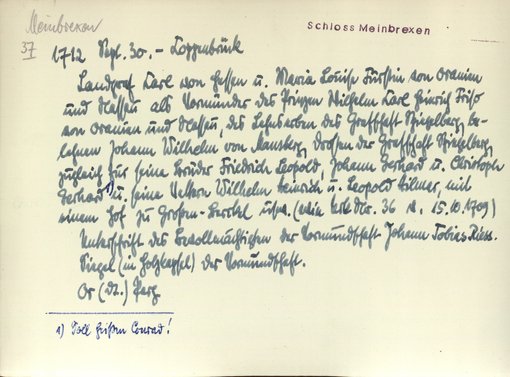 Meinbrexen
37
Schloss Meinbrexen
1712 Sept. 30. - Coppenbrück
Landgraf Carl von Hessen u. Maria Louise Fürstin von Oranien
und Nassau als Vormünder des Prinzen Wilhelm Carl Heinrich Friso
von Oranien und Nassau, des Lehnserben der Grafschaft Spiegelberg, be-
lehnen Johann Wilhelm von Mansberg, Drosten der Grafschaft Spiegelberg,
zugleich für seine Brüder Friedrich Leopold, Johann Gerhard u. Christoph
Gerhard 1) u. seine Vettern Wilhelm Heinrich u. Leopold Hilmar, mit
einem Hof zu Großen-Berkel usw. (wie Urk. Nr. 36 v. 15.10.1709)
Unterschrift des Bevollmächtigten der Vormundschaft Johann Tobias
Siegel (in Holzkapsel) der Vormundschaft.
Or (dt.) Perg
1) Soll heißen Conrad!